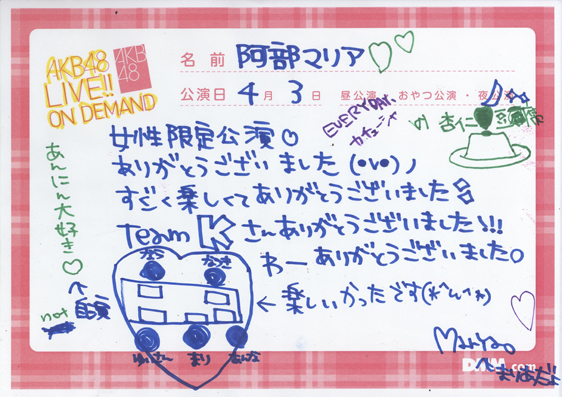 AKB48
LIVE!!
ON DEMAND
AKB
48
名前 阿部マリア
公演日 4月 3日 昼公演・おやつ公演・夜公演
女性限定公演
EVERYDAY、
カチューシャ
の 杏仁
ありがとうございました(•v•)ノ
すごく楽しくてありがとうございました
team K さんありがとうございました!!!
わーありがとうございました。
あんにん大好き♡
なつき
← 楽しいかったです
まり
not
Mariya
DMM.com
まりあだよ